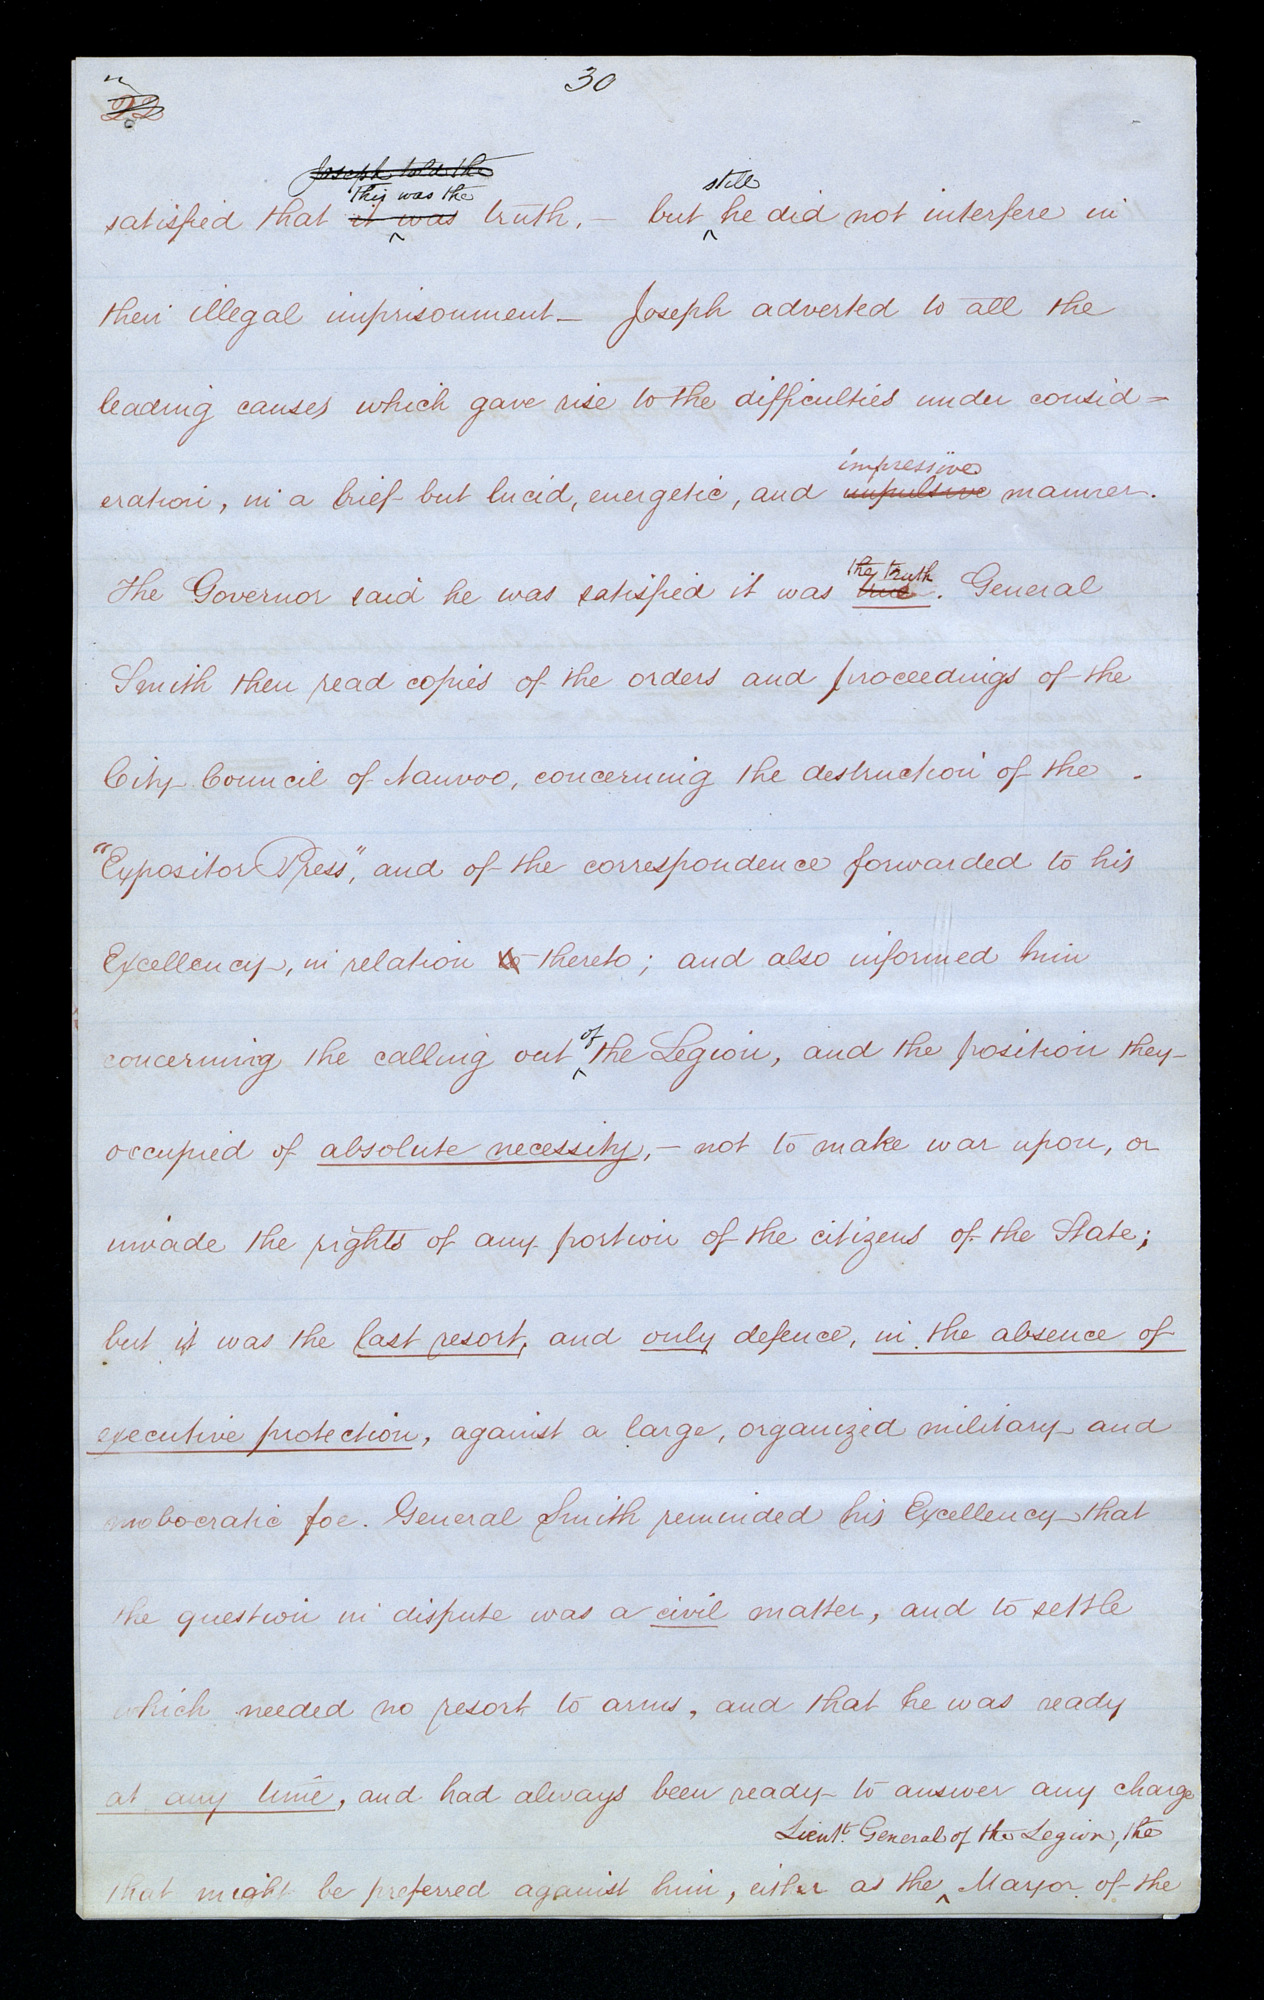 30
22
Joseph told the
this was the
still
satisfied that it was truth, — but he did not interfere in
their illegal imprisonment — Joseph adverted to all the
leading causes which gave rise to the difficulties under consid=
impressive
eration, in a brief but lucid, energetic, and impulsive manner.
the truth
The Governor said he was satisfied it was true. General
Smith then read copies of the orders and proceedings of the
City Council of Nauvoo, concerning the destruction of the
"Expositor Press", and of the correspondence forwarded to his
Excellency, in relation to thereto; and also informed him
of
concerning the calling out the Legion, and the position they
occupied of absolute necessity, — not to make war upon, or
invade the rights of any portion of the citizens of the State;
but it was the last resort, and only defence, in the absence of
executive protection, against a large, organized military and
mobocratic foe. General Smith reminded his Excellency that
the question in dispute was a civil matter, and to settle
which needed no resort to arms, and that he was ready
at any time, and had always been ready to answer any charge
Lieut. General of the Legion, the
that might be preferred against him, either as the Mayor of the